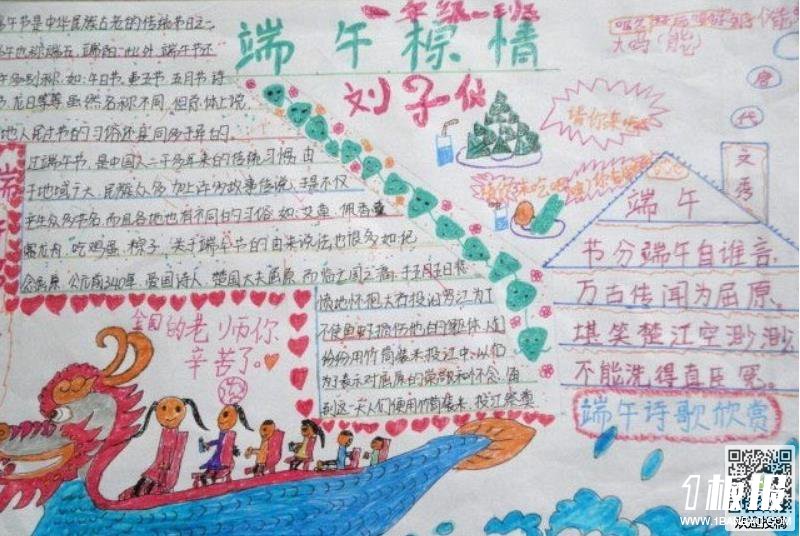 一年级一班
端午棕情
刘子
午节是中华民族古老的传统节日之一
午也称端五,端阳。此外,端午节还
午多别称,如:午日节、重五节、五月节、诗
节、龙日等等。虽然名称不同,但总体上说,
地人民过节的习俗还是同多于异的。
过端午节,是中国人二千多年来的传统习惯,由
于地域广大,民族众多,加上许多故事传说,于是不仅
产生众多
名,而且各地也有不同的习俗。如:艾草、佩香囊
赛龙舟、吃鸡蛋、粽子。关于端午节的由来说法也很多,如:纪
念屈原。公元前340年,爱国诗人、楚国大夫屈原,面临亡国之
于五月五日悲
愤地怀抱大石投汨罗江。为了
不使鱼虾损伤他的躯体,人们
纷纷用竹筒装米投江中,以
为了表示对屈原的崇敬和怀念,每
到这一天人们便用竹筒装米,投江祭奠
端
午
全国的老师你
辛苦了。
大吗(能)
请你来吃
请你来吃吧
唐代
文秀
端午
节分端午自谁言,
万古传闻为屈原。
堪笑楚江空渺渺,
不能洗得直臣冤。
端午诗歌欣赏
1板报
WWW.1BANBAO.COM
欢迎投稿